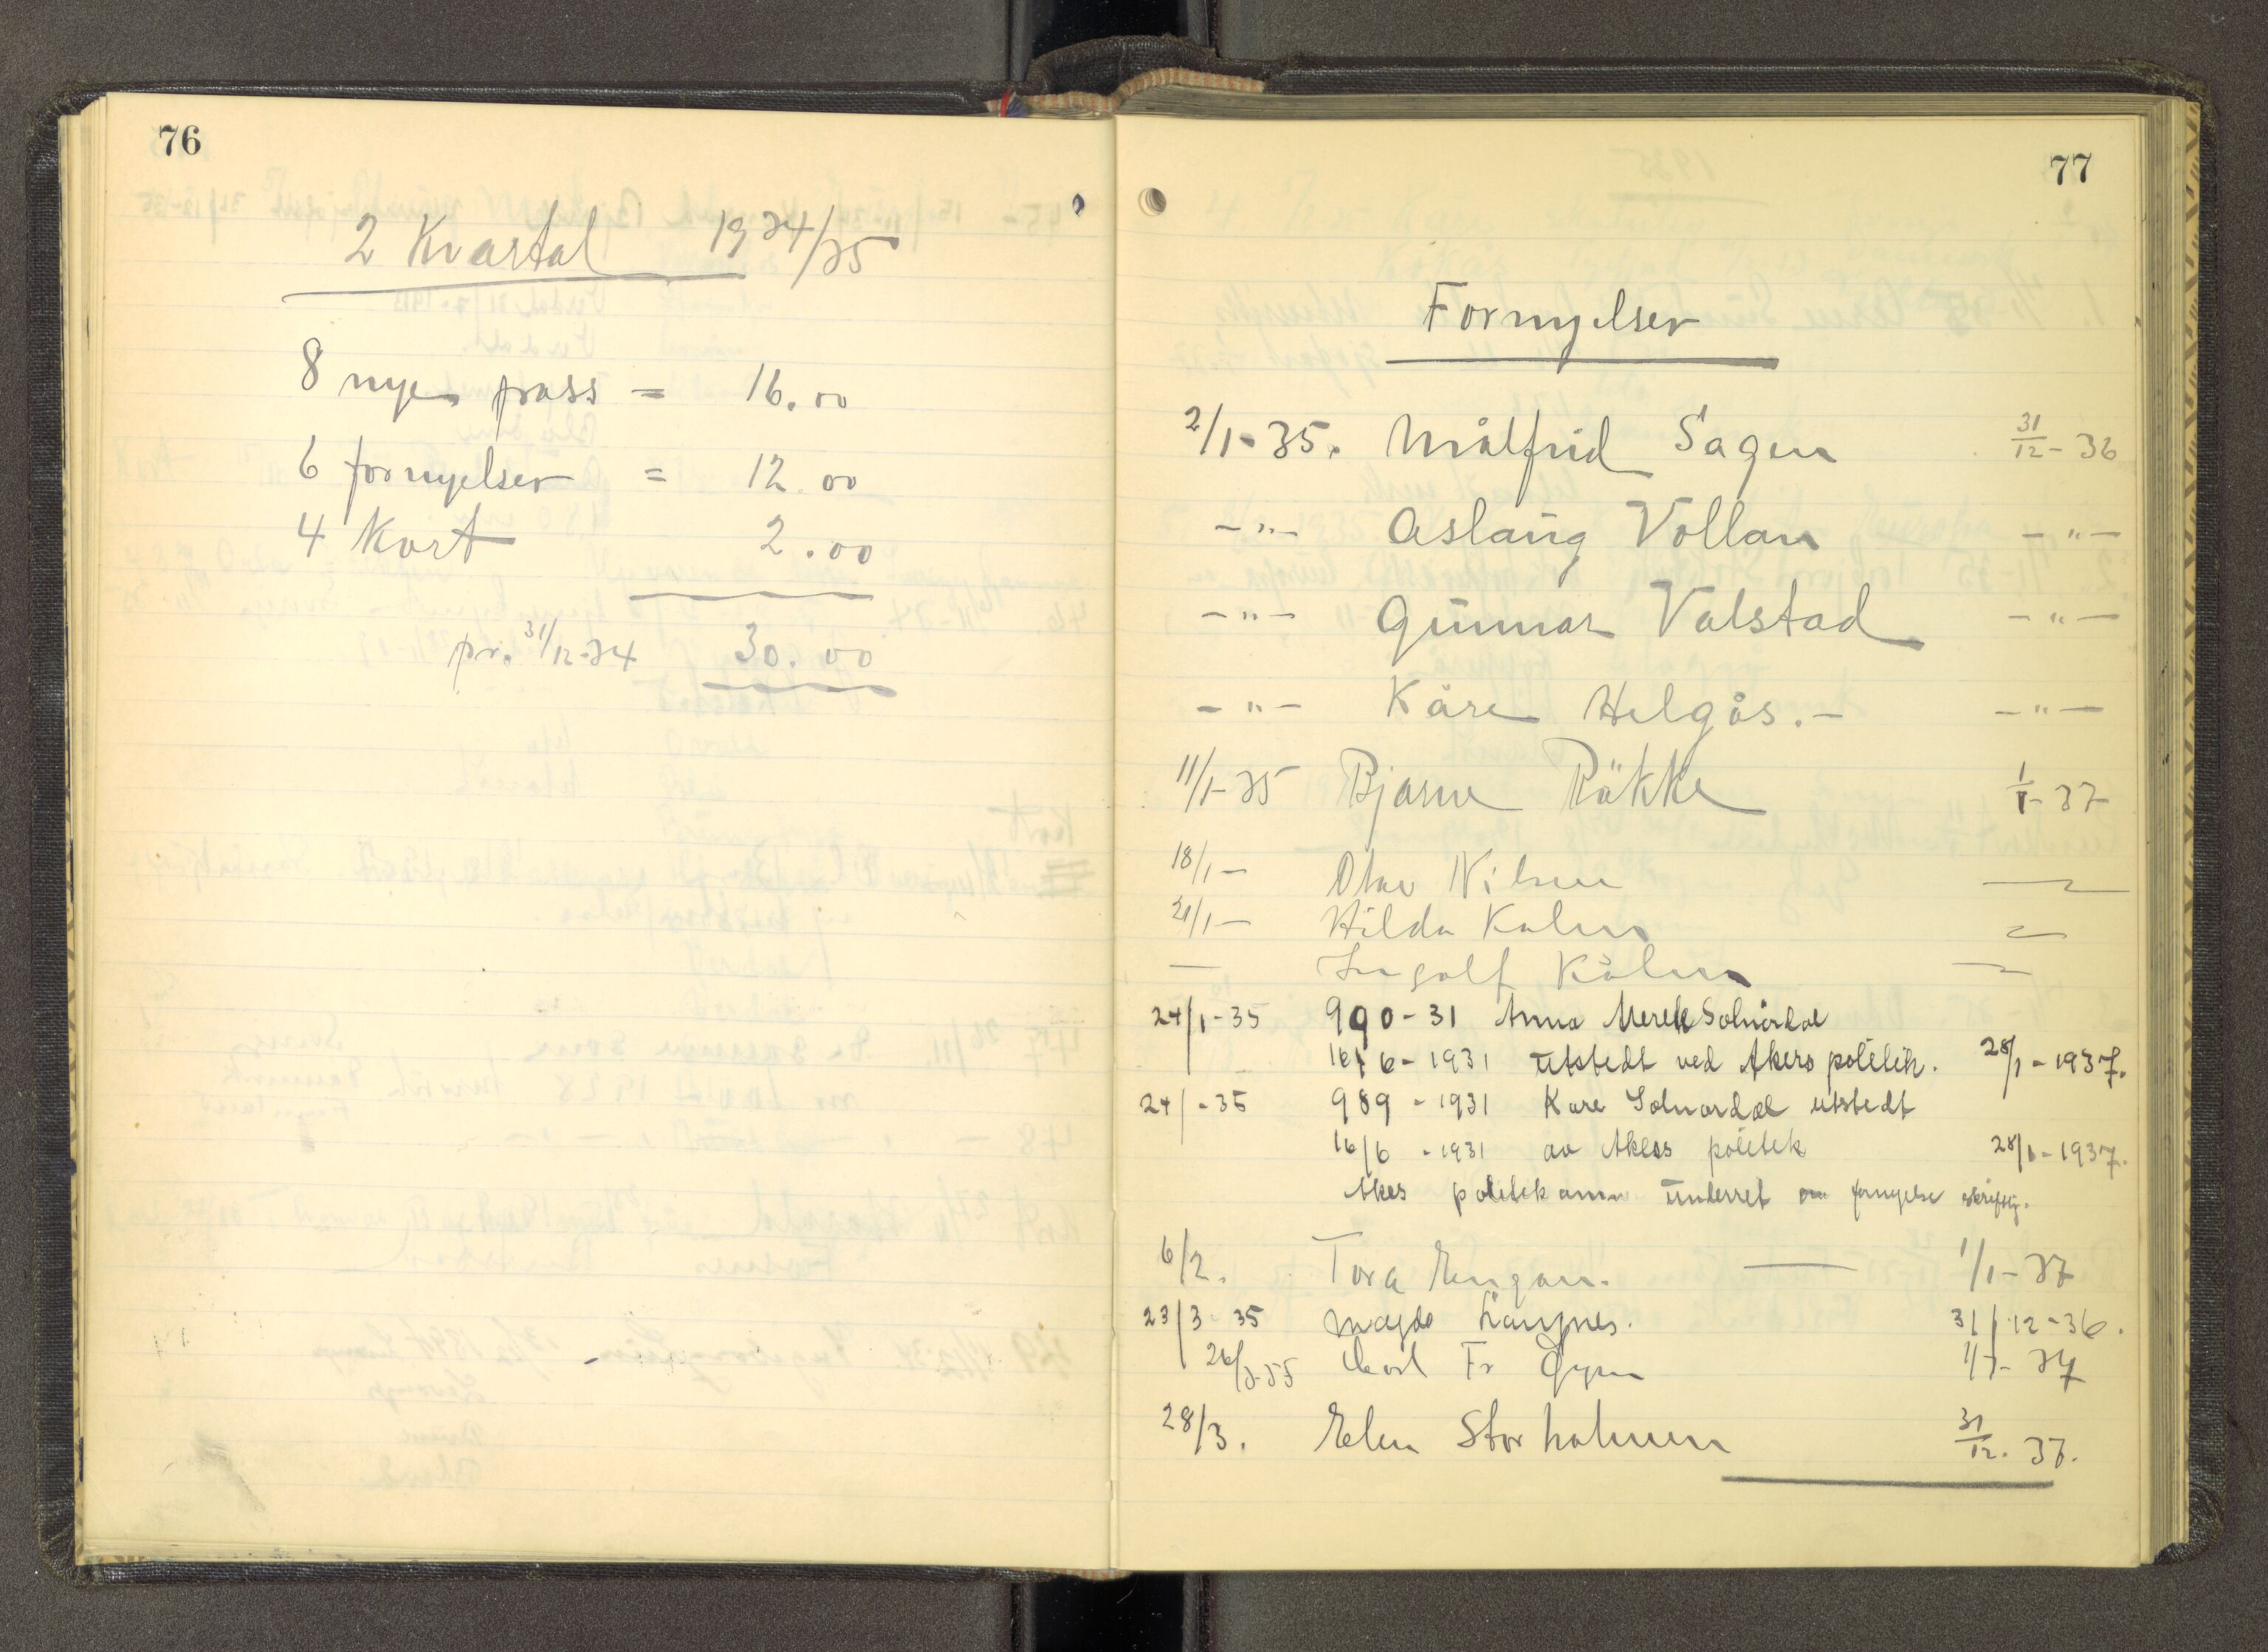 76
2 Kvartal 1934/35
8 nye pass = 16.00
6 fornyelser = 12.00
4 Kort 2.00
pr. 31/12-34 30.00
77
Fornyelser
2/1-35. Målfrid Sagen 31/12-36
-"- Aslaug Vollan -"-
-"- Gunnar Valstad -"-
-"- Kåre Helgås.- -"-
11/1-35 Bjarne Røkke 1/1-37
18/1- Olav Nilsen
21/1- Hilda Kålen
— Ingolf Kålen
24/1-35 990-31 Anna Merete Solnørdal
16/6-1931 utstedt ved Akers politik. 28/1-1937.
24/-35 989-1931 Kåre Solnørdal utstedt
16/6-1931 av Akers politik 28/1-1937.
Akers politikamm underret om fornyelse skriftlig.
6/2. Tora Engan. — 1/1-37
23/3-35 Magda 31/12-36.
26/3-35 Karl Fr 1/1-37
28/3. Elen Storholmen 31/12.37.